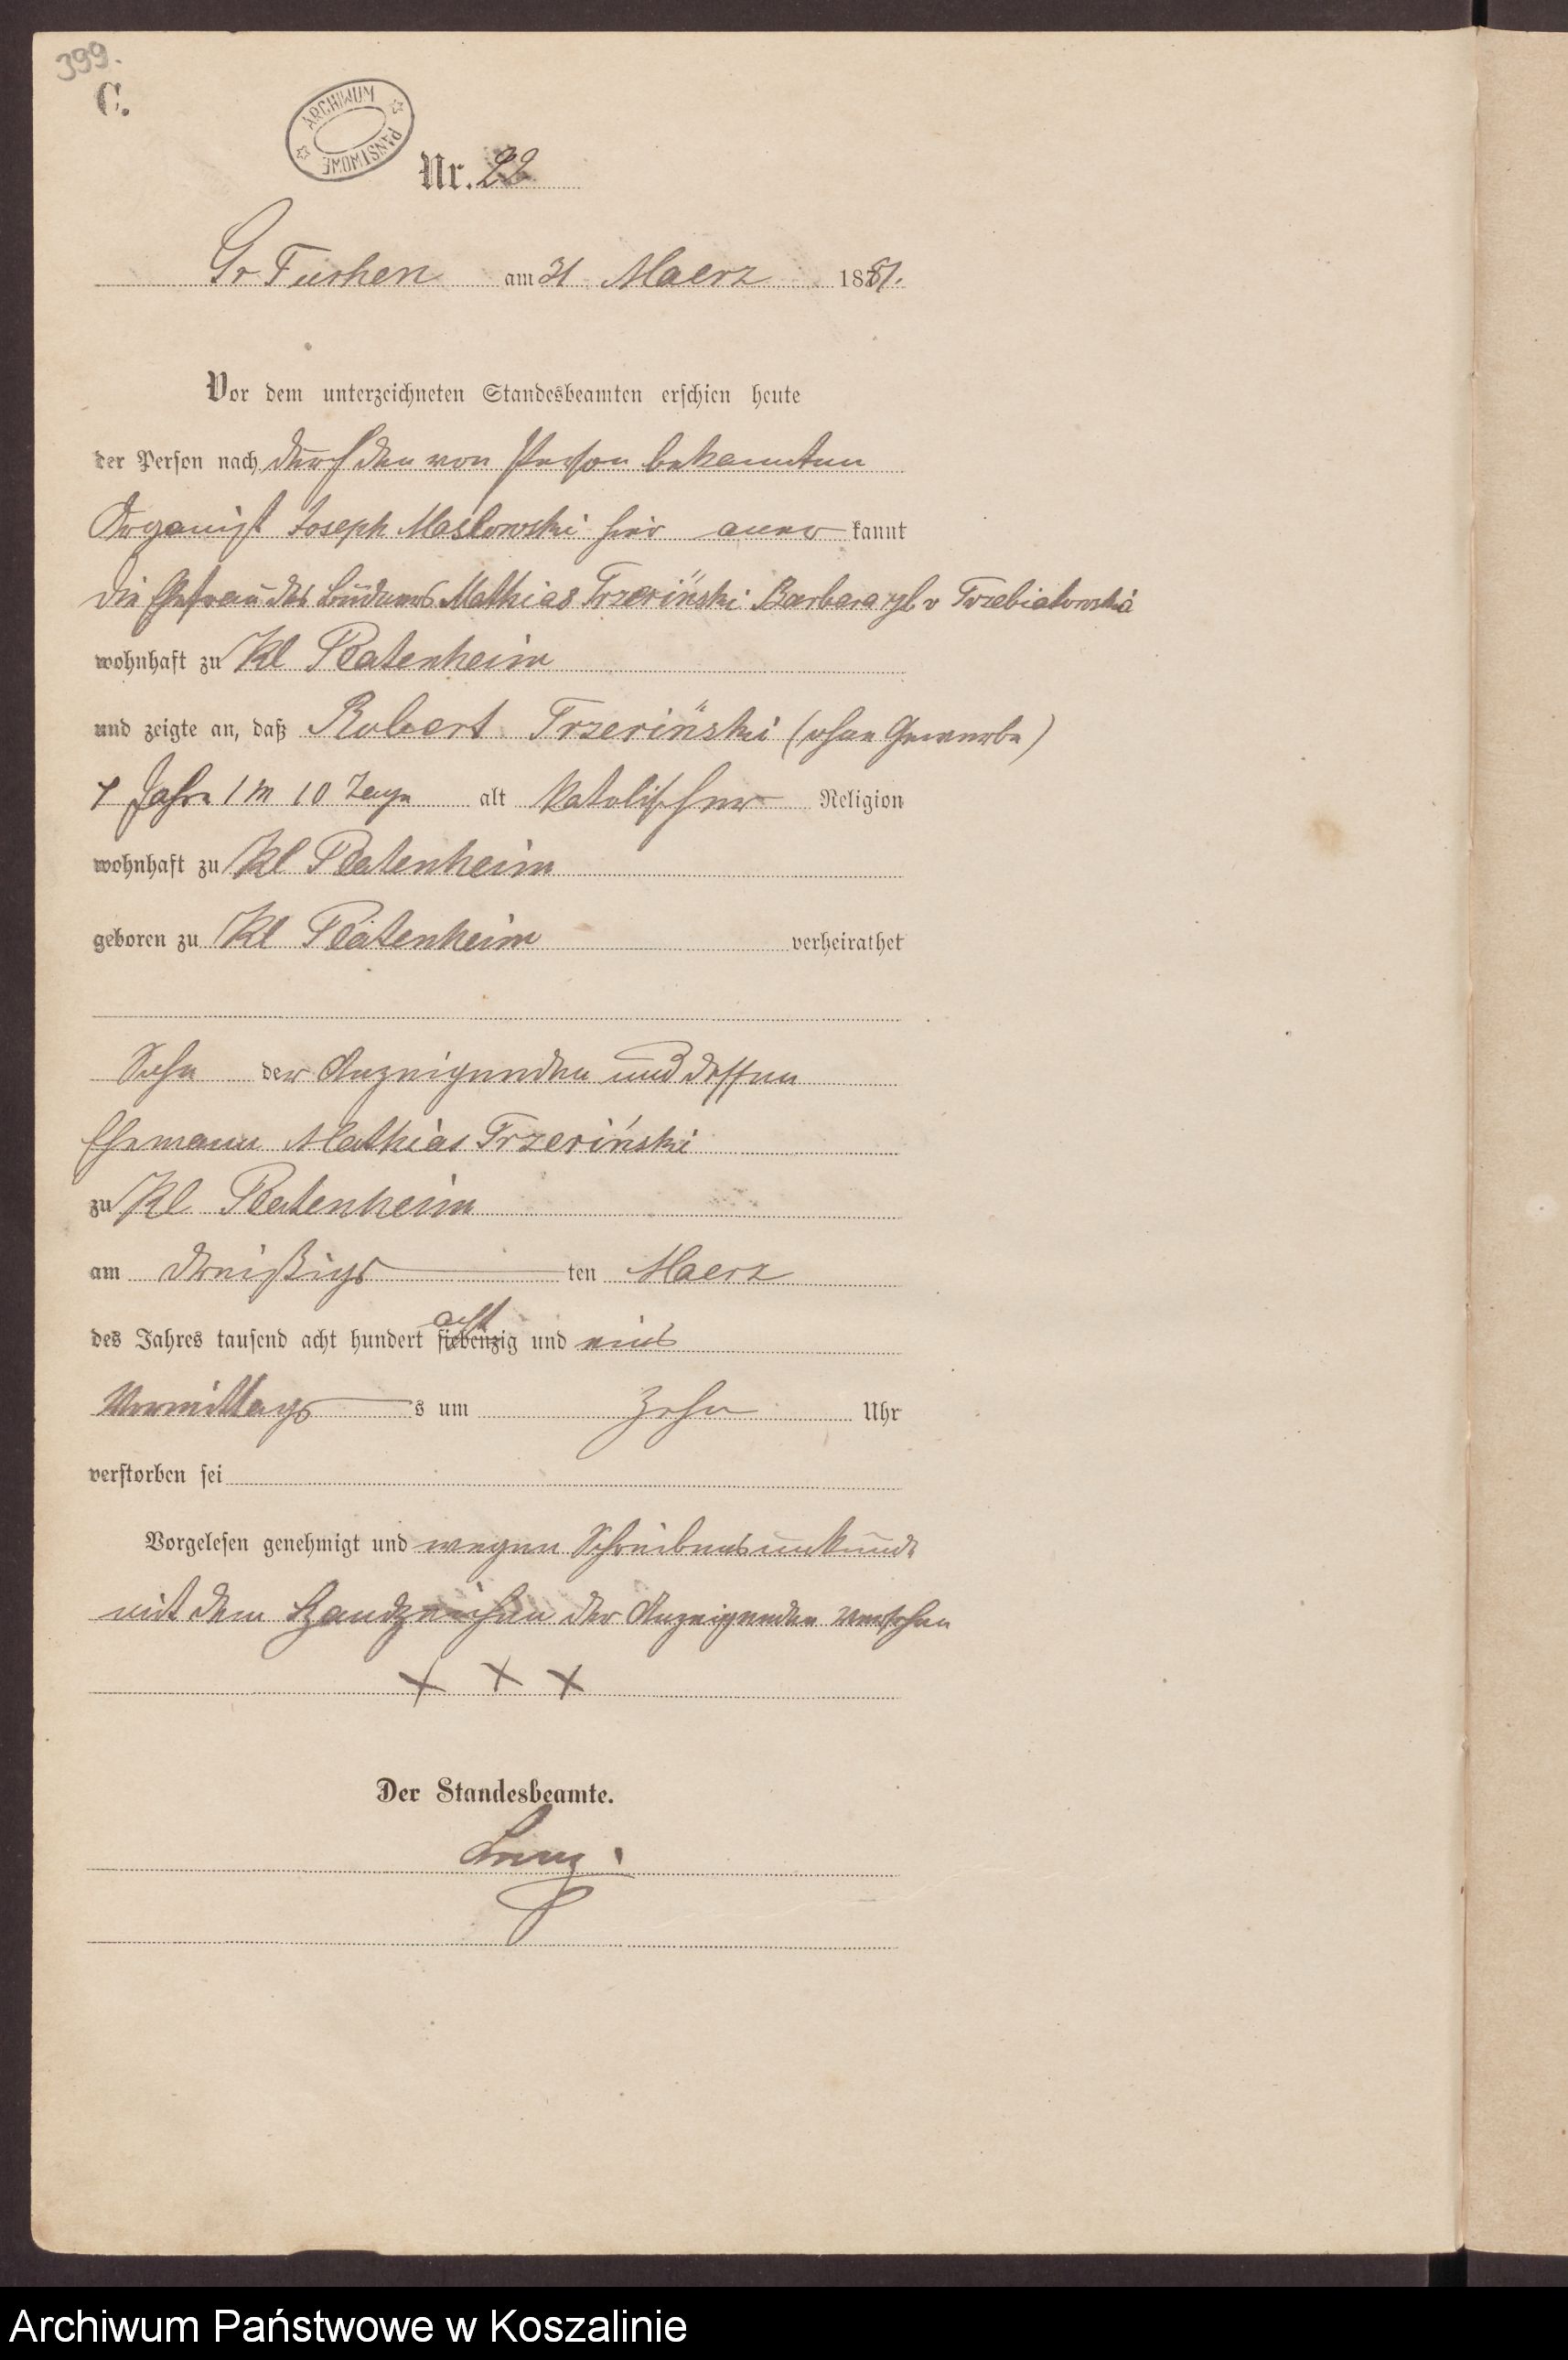 399.
C.
ARCHIWUM PAŃSTWOWE
Nr. 22
Gr Tuchen am 31 Maerz 1881.
Vor dem unterzeichneten Standesbeamten erschien heute
der Person nach durch den von Person bekannten
Organist Joseph Maslowski hier aner kannt
die Ehefrau des Mathias Trzeriński Barbara geb v Trzebiatowska
wohnhaft zu Kl Platenheim
und zeigte an, daß Robert Trzeriński (ohne Gewerbe)
Jahre 1 M 10 Tage alt katolischer Religion
wohnhaft zu Kl Platenheim
geboren zu Kl Platenheim verheirathet
Sohn der Anzeigenden und dessen
Ehemann Mathias Trzeriński
zu Kl Platenheim
am dreißigs ten Maerz
des Jahres tausend acht hundert siebenzig acht und eins
Vormittags s um zehn Uhr
verstorben sei
Vorgelesen genehmigt und wegen Schreibensunkunde
mit dem Handzeichen der Anzeigenden versehen
X X X
Der Standesbeamte.
Archiwum Państwowe w Koszalinie